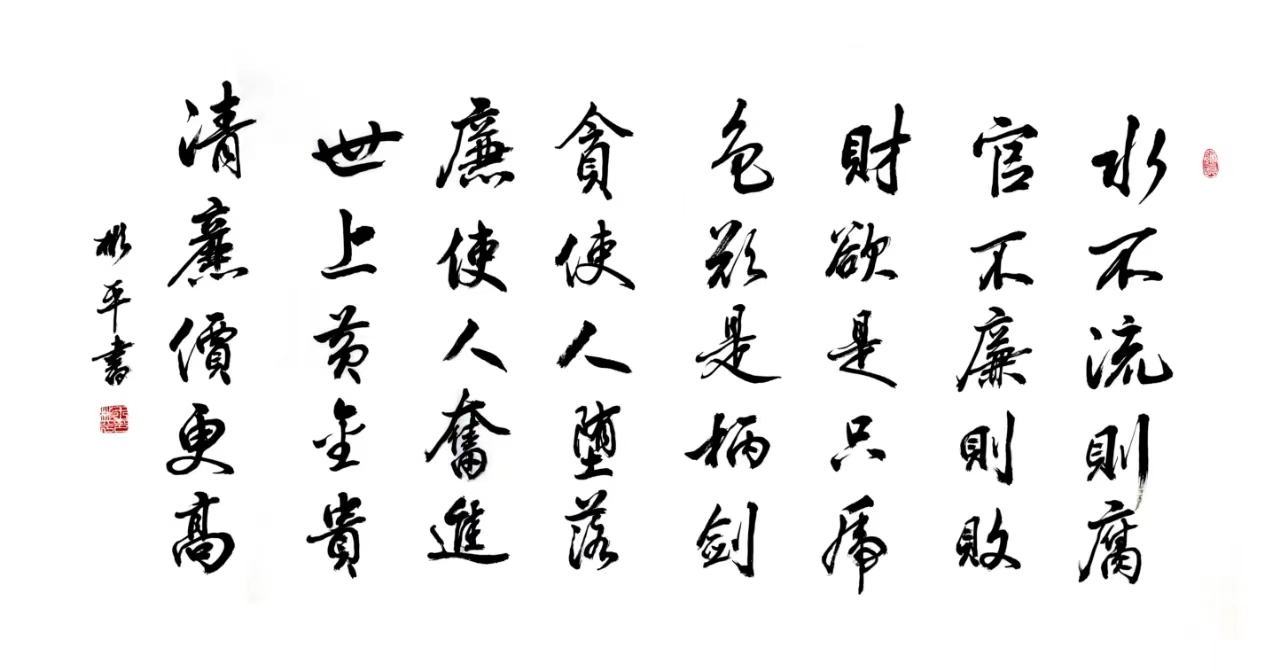 水不流則腐
官不廉則敗
財欲是只虎
色欲是柄劍
貪使人墮落
廉使人奮進
世上黄金貴
清廉價更高
彬平書